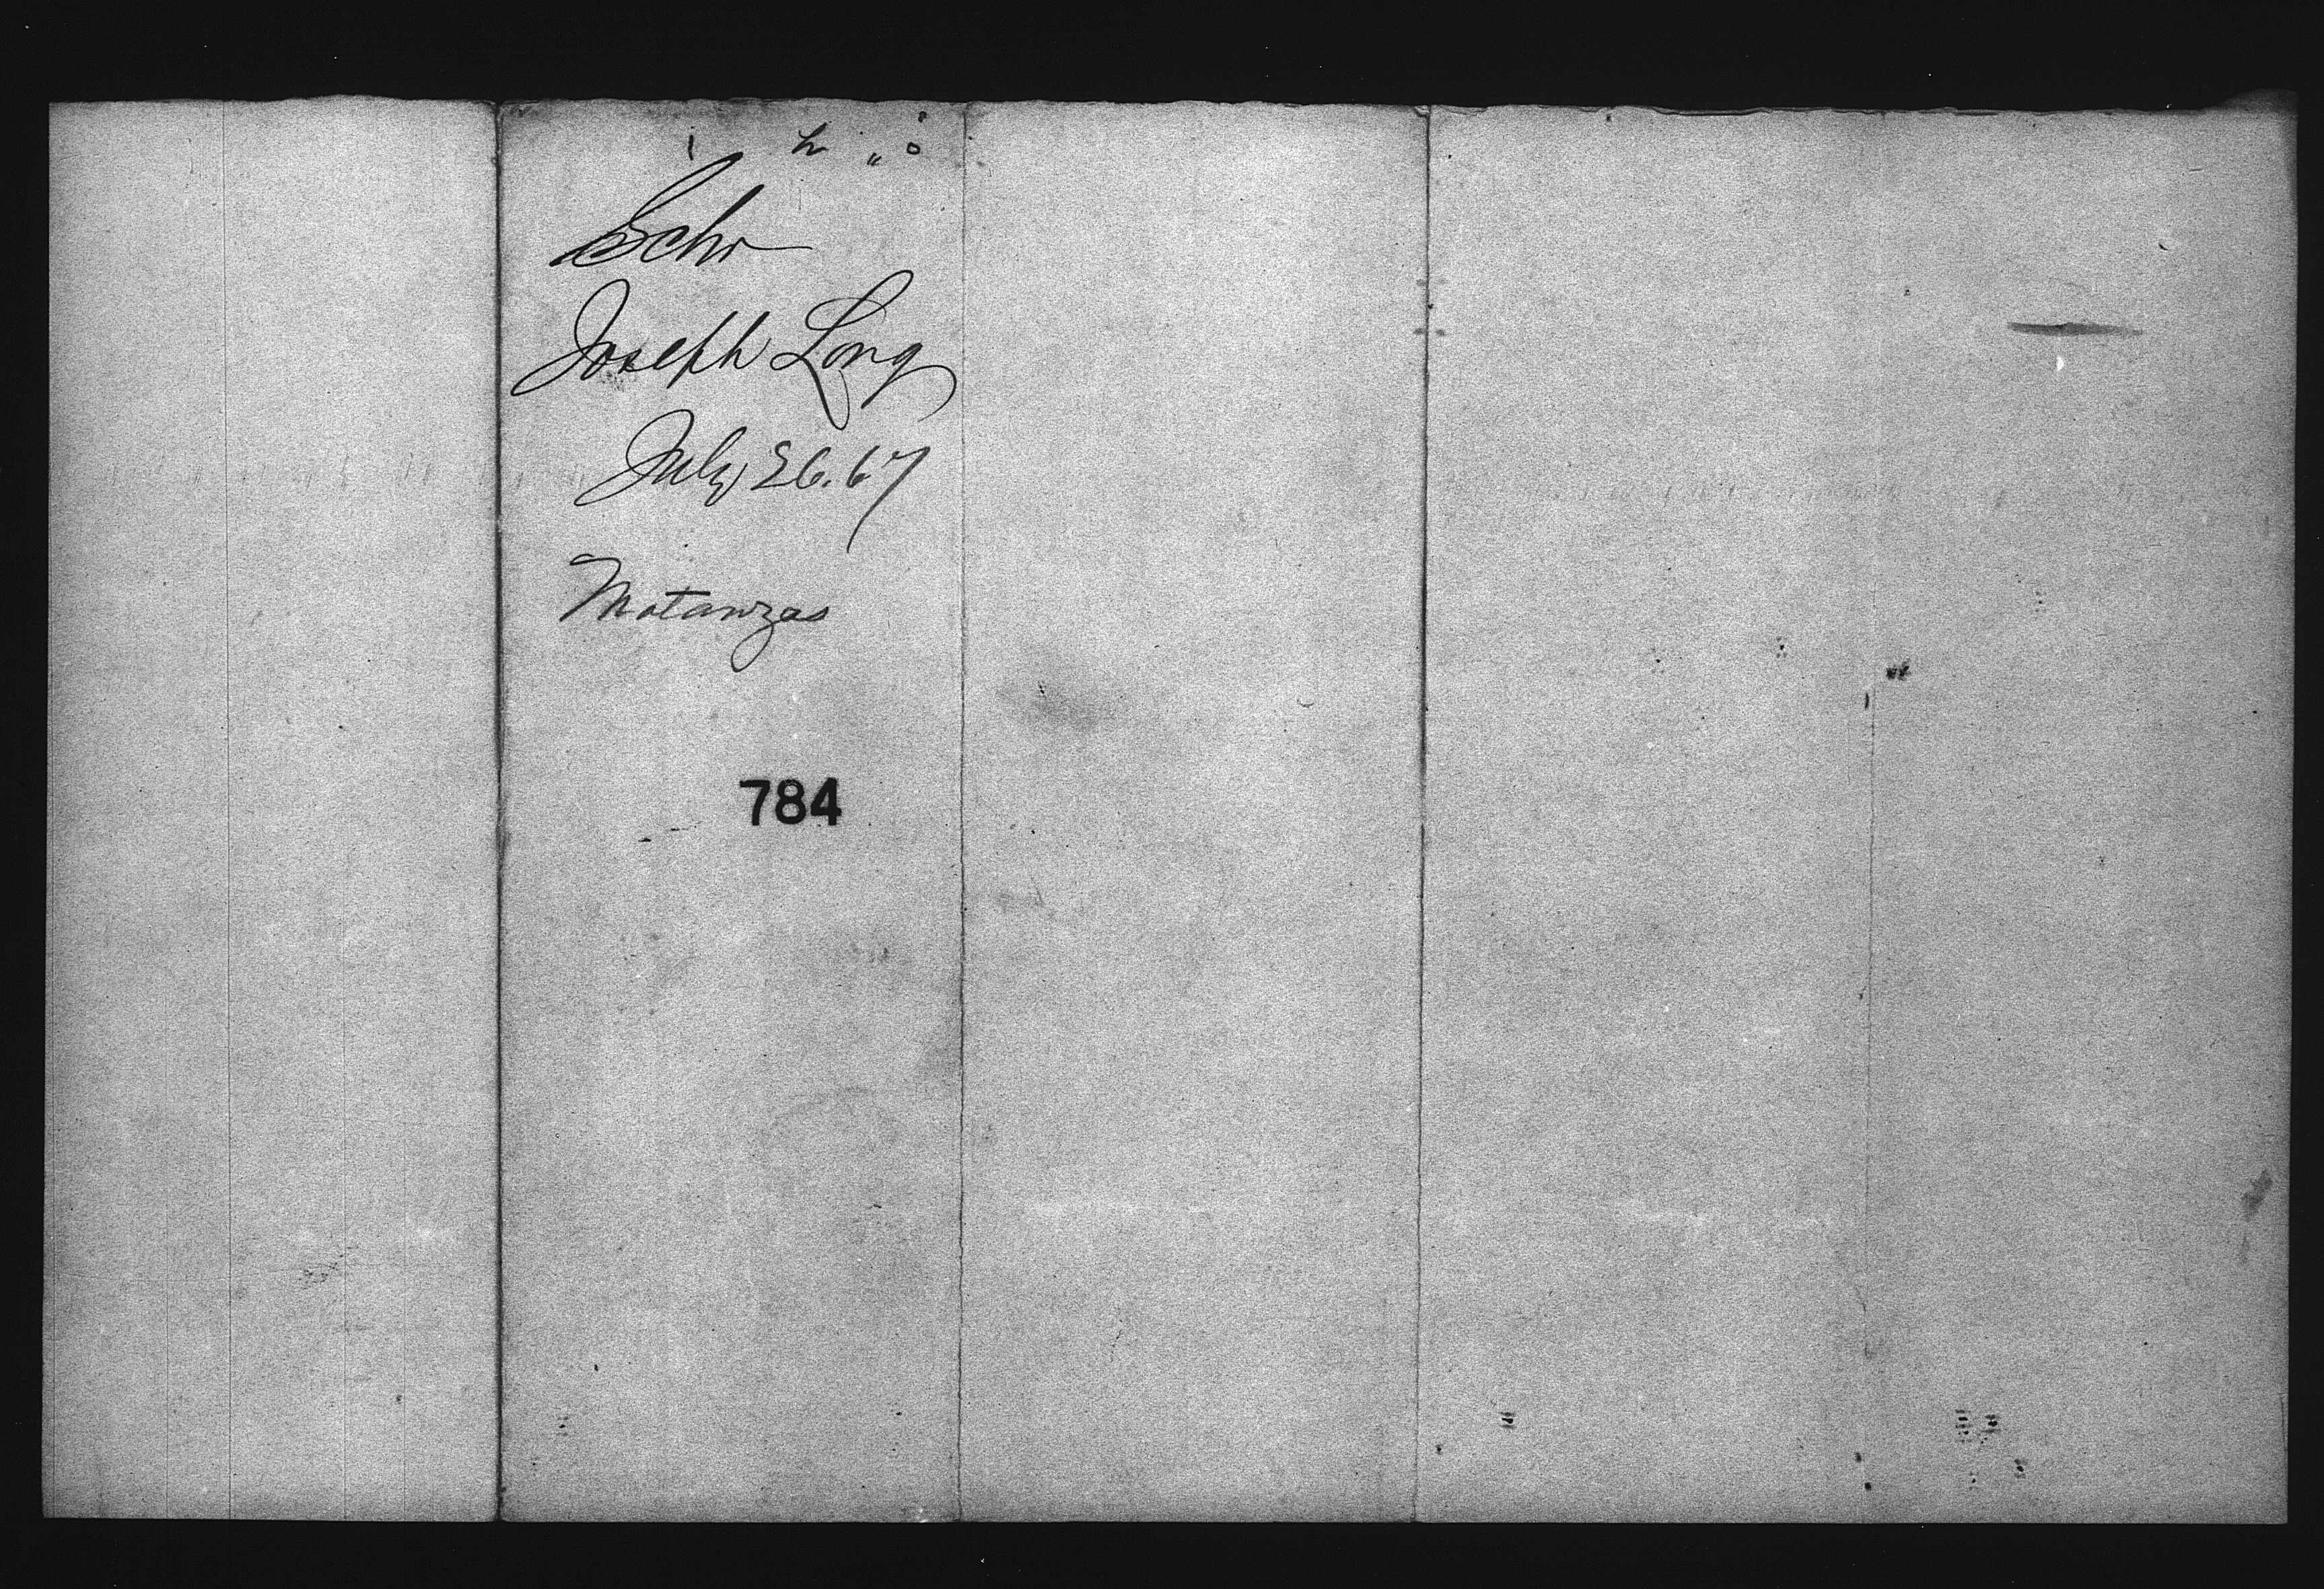 Schr
Joseph Long
July 26.67
Matanzas
784